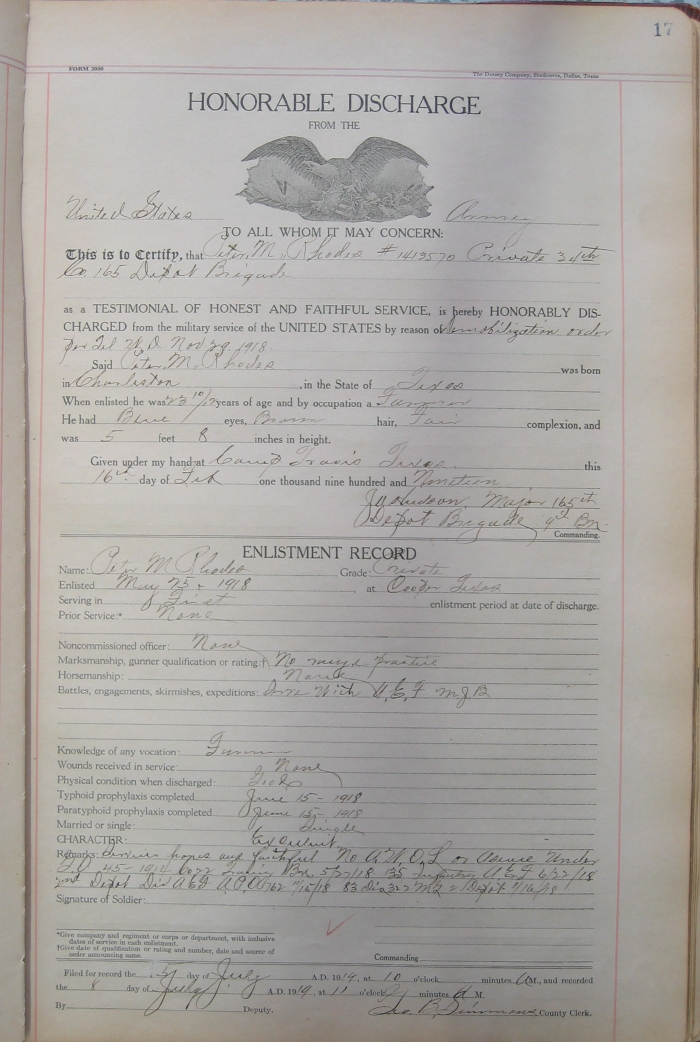 17
FORM 3030
The Dorsey Company, Stationers, Dallas, Texas
HONORABLE DISCHARGE
FROM THE
United States Army
TO ALL WHOM IT MAY CONCERN:
This is to Certify, that Peter M. Rhodes # 1413570 Private 34th
Co. 165 Depot Brigade
as a TESTIMONIAL OF HONEST AND FAITHFUL SERVICE, is hereby HONORABLY DIS-
CHARGED from the military service of the UNITED STATES by reason of demobilization order
per Tel W. D. Nov 29. 1918
Said Peter M. Rhodes was born
in Charleston, in the State of Texas
When enlisted he was 23 10/12 years of age and by occupation a Farmer
He had Blue eyes, Brown hair, Fair complexion, and
was 5 feet 8 inches in height.
Given under my hand at Camp Travis Texas. this
16th day of Feb one thousand nine hundred and Nineteen
Judson Major 165th
Depot Brigade 9th Bn.
Commanding.
ENLISTMENT RECORD
Name: Peter M Rhodes Grade: Private
Enlisted May 25 - 1918, at Cooper Texas
Serving in First enlistment period at date of discharge.
Prior Service:* None
Noncommissioned officer: None
Marksmanship, gunner qualification or rating:† No practice
Horsemanship: None
Battles, engagements, skirmishes, expeditions: With A. E. F
Knowledge of any vocation: Farmer
Wounds received in service: None
Physical condition when discharged:
Typhoid prophylaxis completed June 15 - 1918
Paratyphoid prophylaxis completed June 15 - 1918
Married or single: Single
CHARACTER: Excellent
Remarks: Service honest and faithful No A. W. O. L or Absence Under
G O 45-1914 Bn 5/27/18 135 Infantry A E F 6/22/18
2nd Depot Div A E F A. P. O. 762 83 Div 322 M G
Signature of Soldier:
*Give company and regiment or corps or department, with inclusive
dates of service in each enlistment.
†Give date of qualification or rating and number, date and source of
order announcing same.
Commanding
Filed for record the day of July A.D. 1919, at 10 o'clock minutes A M., and recorded
the 8 day of July A.D. 1919, at 11 o'clock minutes A M.
By Deputy. Geo. B. Simmons County Clerk.